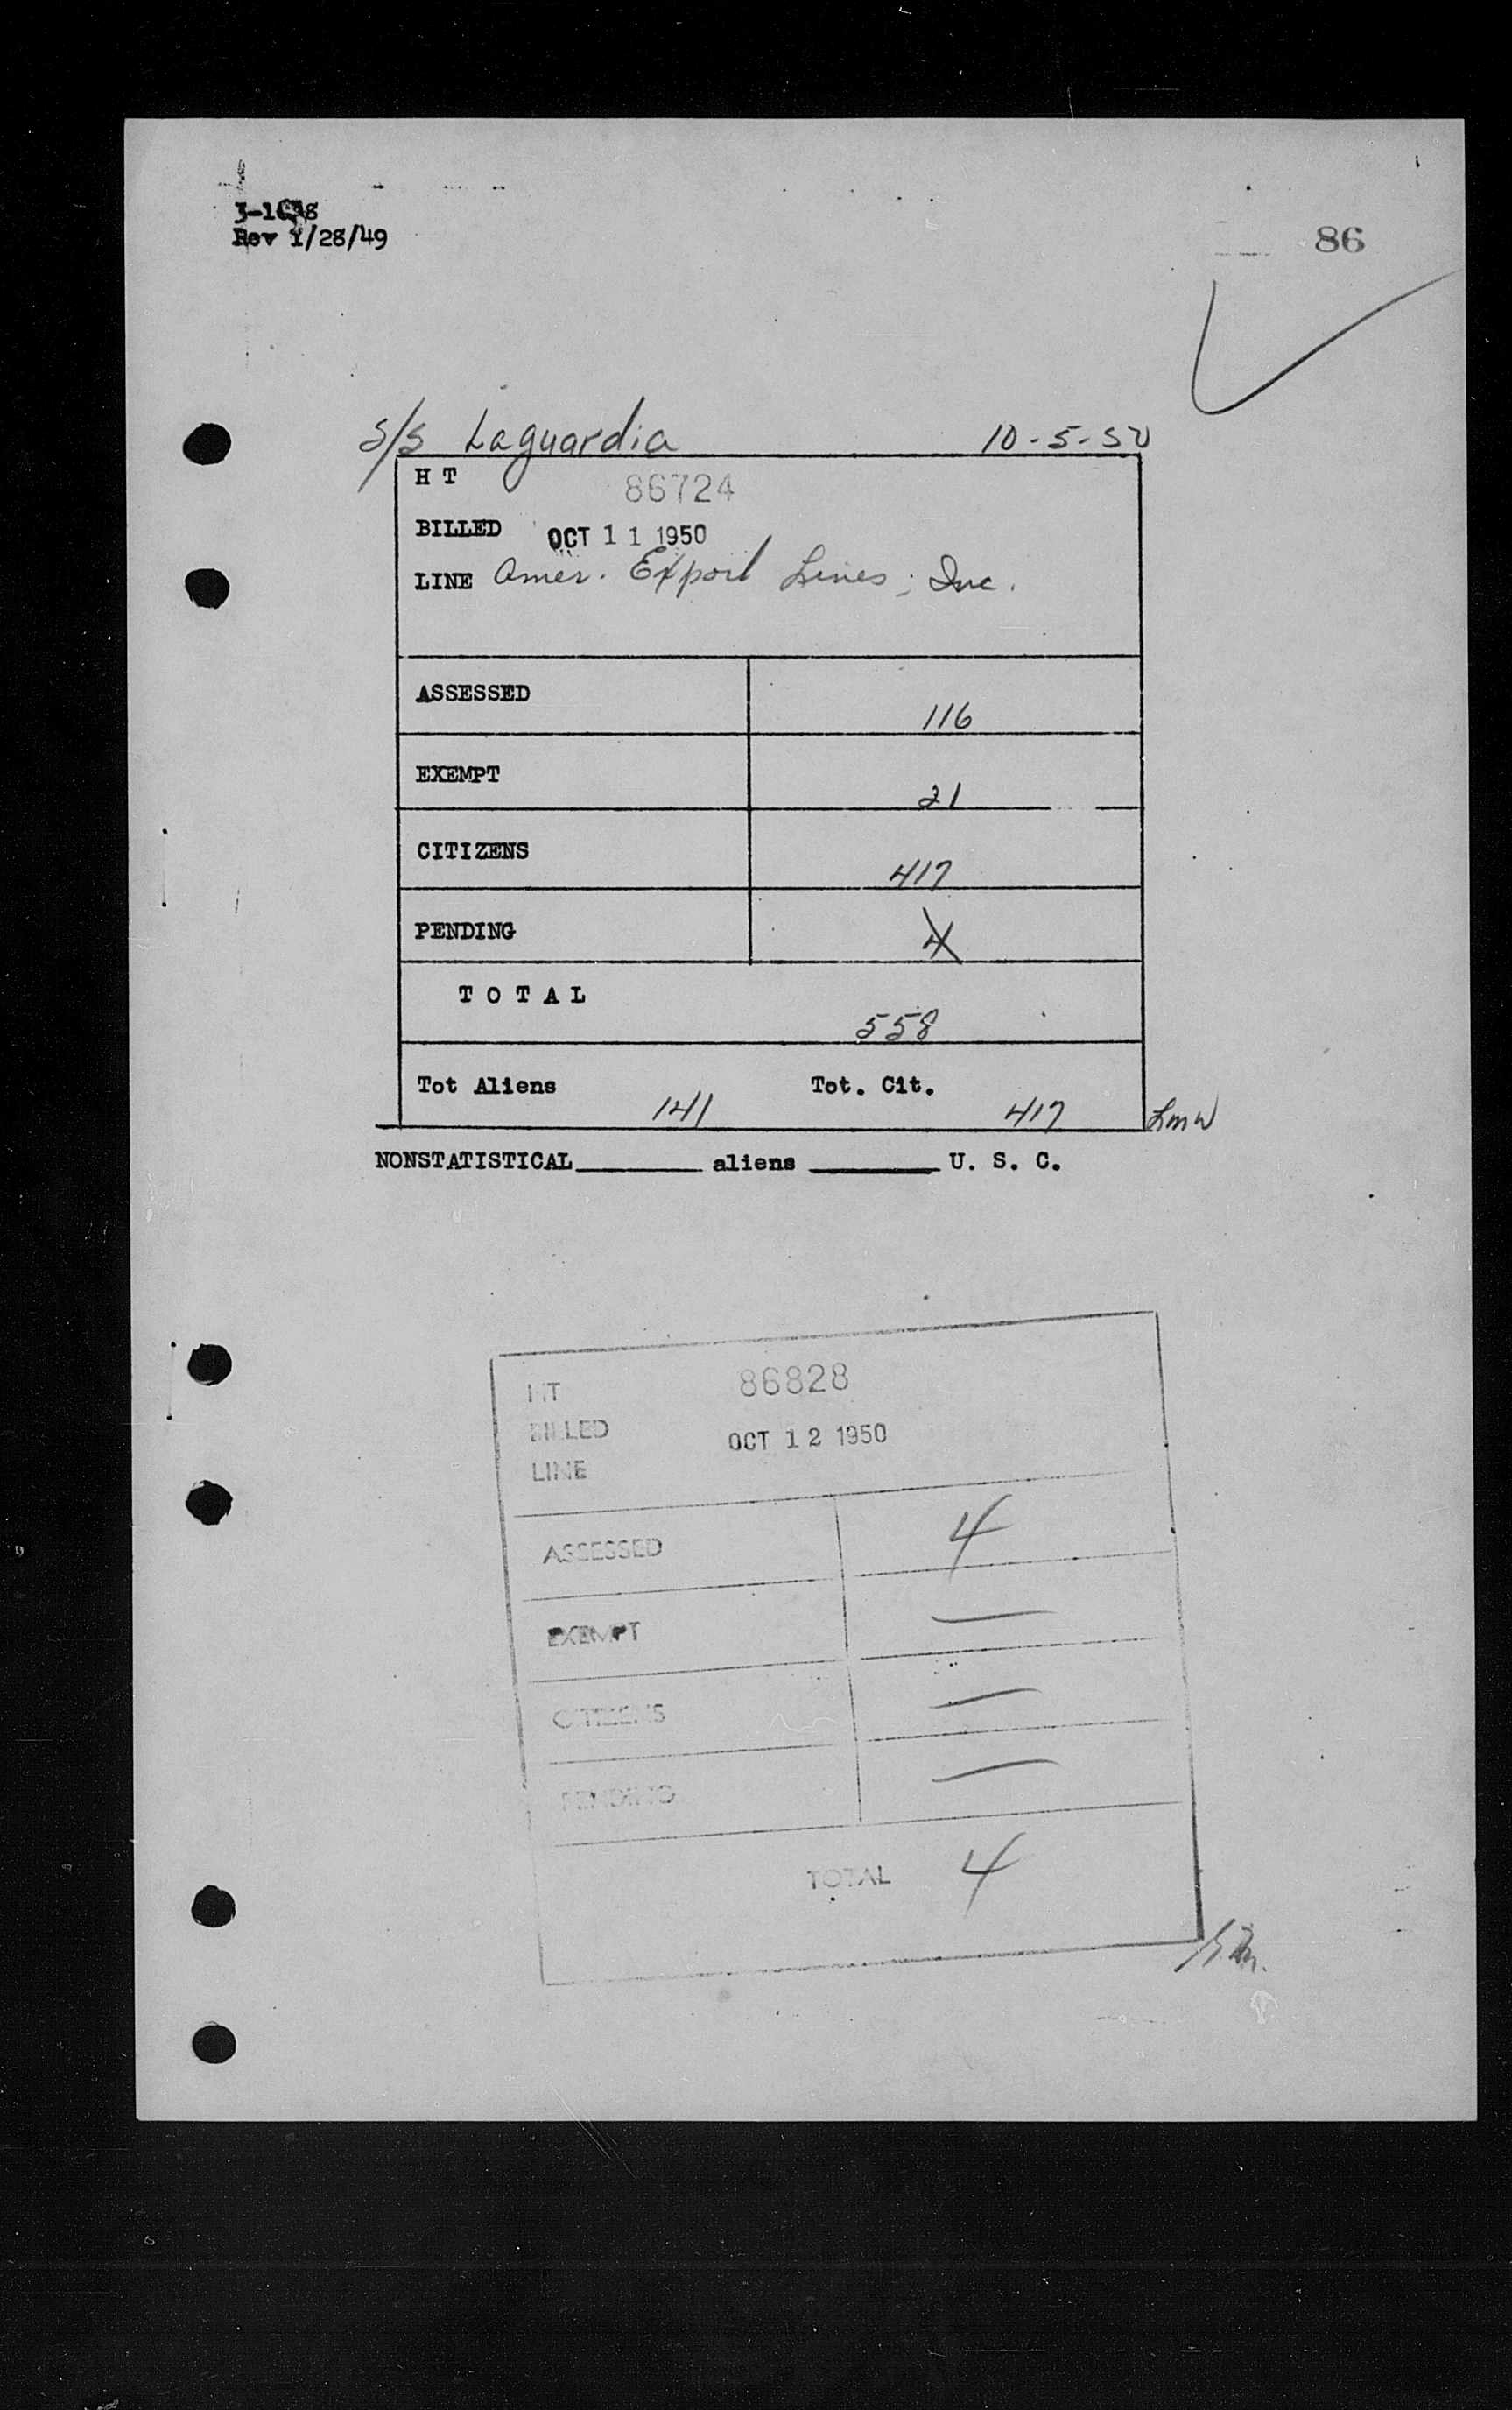 Rev 1/28/49
86
S/S Laguardia 10-5-50
H T 86724
BILLED OCT 11 1950
LINE Amer. Export Lines, Inc.
ASSESSED 116
EXEMPT 21
CITIZENS 417
PENDING 4
T O T A L 558
Tot Aliens 141 Tot. Cit. 417 LMW
NONSTATISTICAL aliens U. S. C.
HT 86828
BILLED OCT 12 1950
LINE
ASSESSED 4
EXEMPT —
CITIZENS —
PENDING —
TOTAL 4